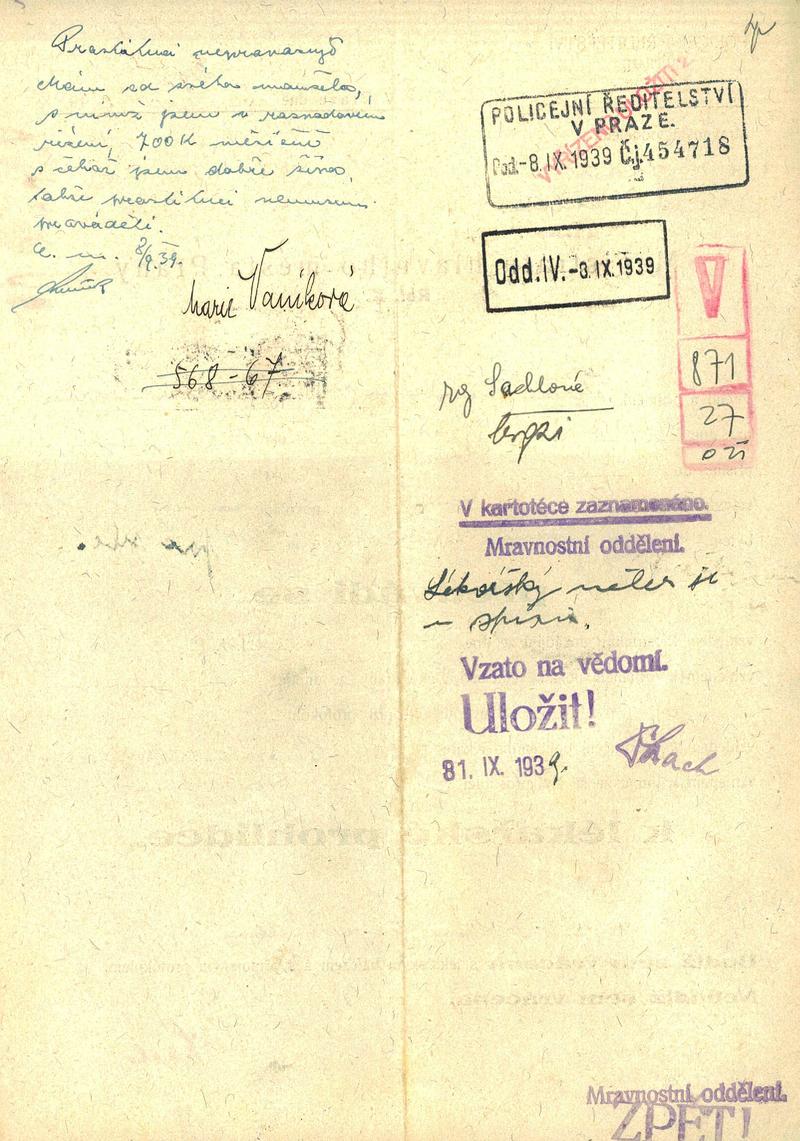 Prostituci neprovozuji
mám od svého manžela,
s nímž jsem v rozvodovém
řízení, 700 K měsíčně
s čehož jsem dobře živa,
takže prostituci nemusím
prováděti.
8/9 39.
Marie Vaníková
568-67
POLICEJNÍ ŘEDITELSTVÍ
V PRAZE.
Pod.-8.IX.1939 Čj.454718
Odd.IV.-8.IX.1939
V
871
27
V kartotéce zaznamenáno.
Mravnostní oddělení.
Lékařský
Vzato na vědomí.
Uložit!
81. IX. 1939.
Mravnostní oddělení.
ZPĚT!